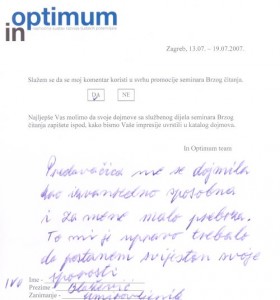 optimum
in
Zagreb, 13.07. – 19.07.2007.
Slažem se da se moj komentar koristi u svrhu promocije seminara Brzog čitanja.
DA
NE
Najljepše Vas molimo da svoje dojmove sa službenog dijela seminara Brzog
čitanja zapišete ispod, kako bismo Vaše impresije uvrstili u katalog dojmova.
In Optimum team
Predavačica me se dojmila
kao izvanredno sposobna
i za mene malo prebrza.
To mi je upravo trebalo
da postanem svijestan svoje
sporosti
Ime -
Prezime -
Zanimanje -
umirovljenik